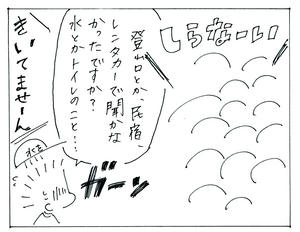 しらなーい
登山口とか、民宿、
レンタカーで聞かな
かったですか?
水とかトイレのこと…
ガーン
きいてませーん